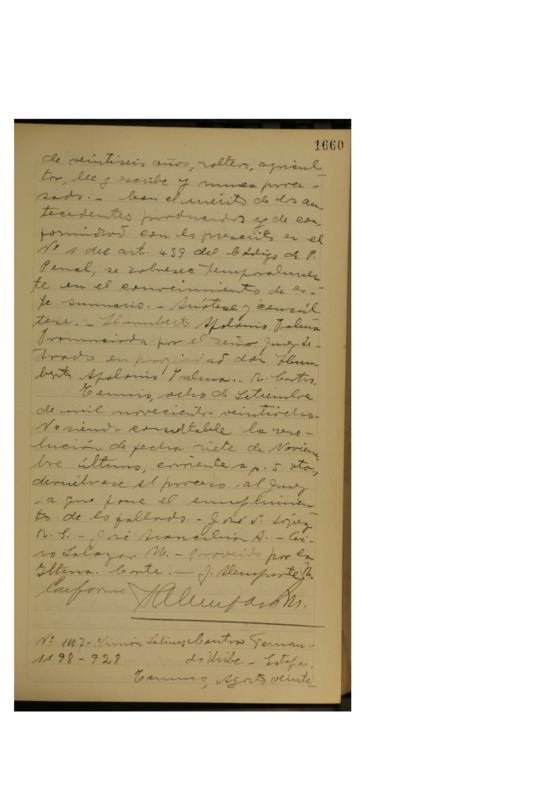 1660
de veintiseis años, soltero, agricul-
tor, lee y escribe y nunca proce-
sado. - Con el mérito de los an-
tecedentes producidos y de con
formidad con lo prescrito en el
Nº 1 del art. 439 del Código de P.
Penal, se sobresee temporalmen-
te en el conocimiento de es-
te sumario. - Anótese y consúl
tese. - Humberto Apolonio Palma
Pronunciada por el señor Juez Le-
trado en propiedad don Hum-
berto Apolonio Palma. - R. Castro.
Temuco, ocho de Setiembre
de mil novecientos veintiocho.
No siendo consultable la reso-
lución de fecha siete de Noviem-
bre último, corriente a f. 5 vta.,
devuélvase el proceso al Juez
a que para el cumplimien-
to de lo fallado. - José S. López
R. S. - José A. - Ci-
ro Salazar M. - Proveido por la
Iltma. Corte. - J. Alemparte M.
Conforme
Nº 1107 - Simón Salinas Contra Fernan-
1198-928 do Uribe - Estafa.
Temuco, Agosto veinte